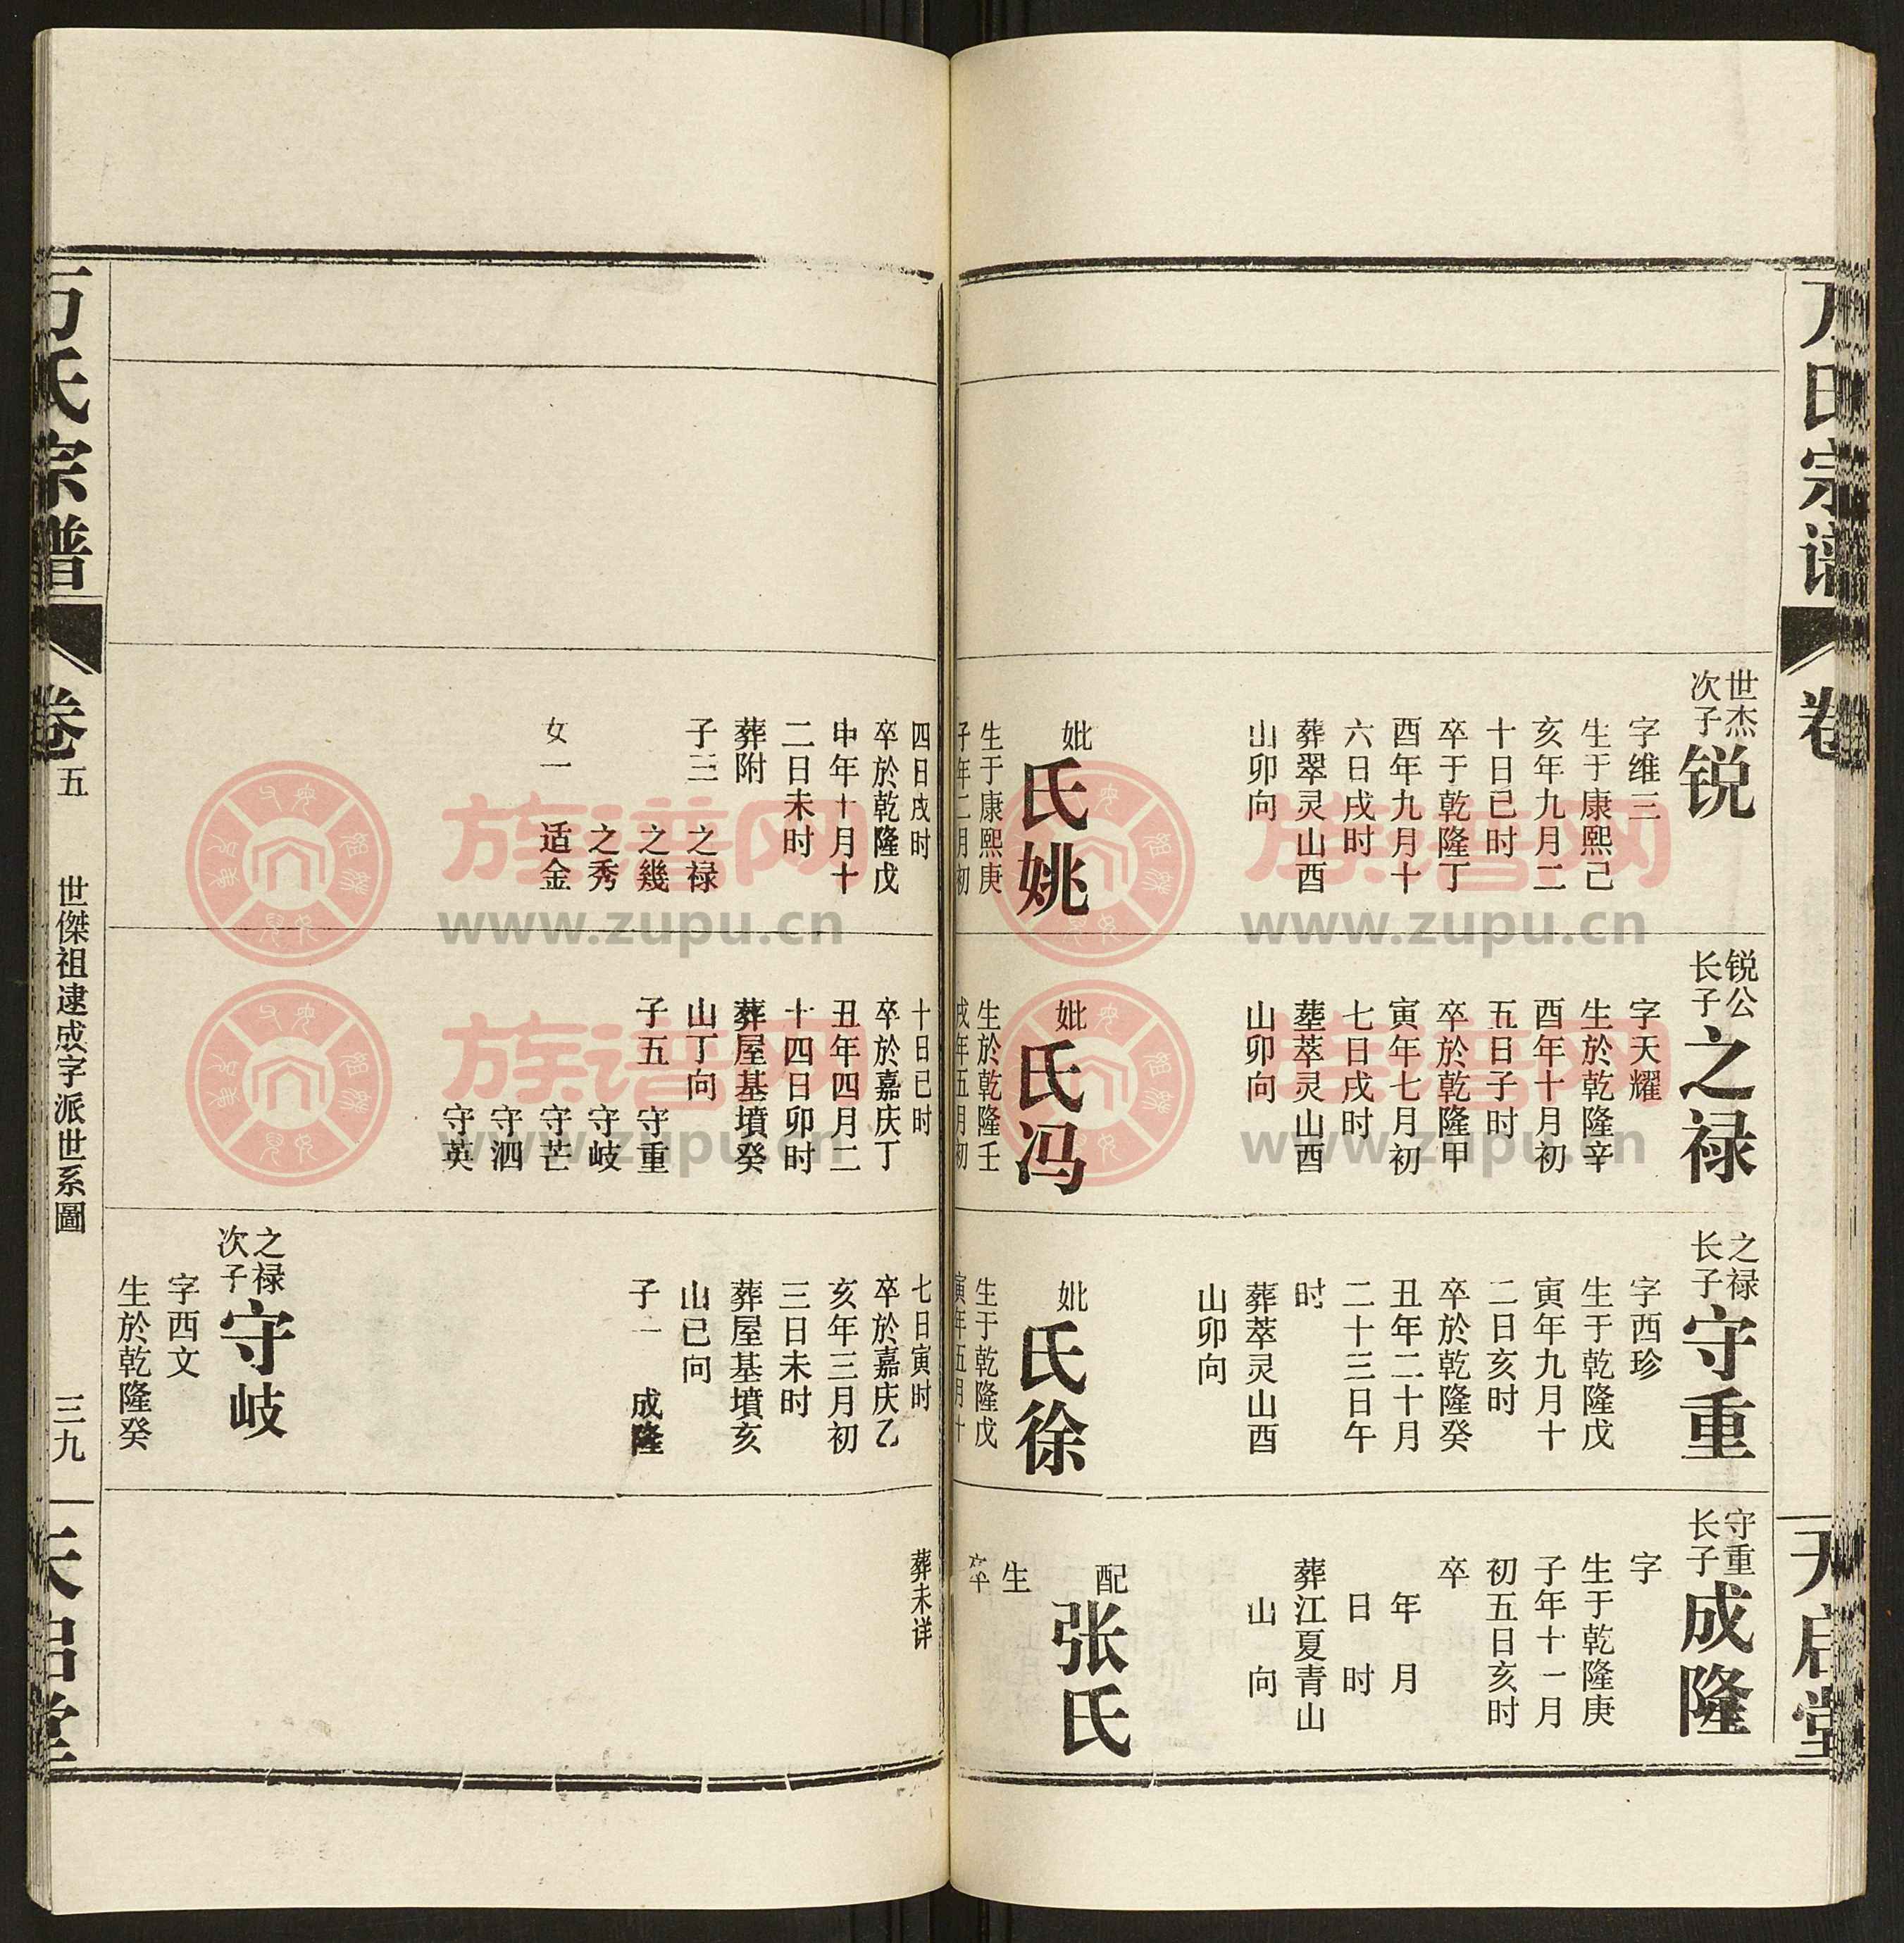 氏宗
卷
世杰
次子
锐
字维三
生于康熙己
亥年九月二
十日已时
卒于乾隆丁
酉年九月十
六日戌时
葬翠灵山酉
山卯向
妣
氏姚
生于康熙庚
子年二月初
四日戌时
卒於乾隆戊
申年十月十
二日未时
葬附
子三 之禄
之幾
之秀
女一 适金
锐公
长子
之禄
字天耀
生於乾隆辛
酉年十月初
五日子时
卒於乾隆甲
寅年七月初
七日戌时
塟萃灵山酉
山卯向
妣
氏冯
生於乾隆壬
戌年五月初
十日已时
卒於嘉庆丁
丑年四月二
十四日卯时
葬屋基墳癸
山丁向
子五 守重
守岐
守芒
守泗
守英
之禄
长子
守重
字西珍
生于乾隆戊
寅年九月十
二日亥时
卒於乾隆癸
丑年二十月
二十三日午
时
葬萃灵山酉
山卯向
妣
氏徐
生于乾隆戊
寅年五月十
七日寅时
卒於嘉庆乙
亥年三月初
三日未时
葬屋基墳亥
山已向
子一 成隆
之禄
次子
守岐
字西文
生於乾隆癸
守重
长子
成隆
字
生于乾隆庚
子年十一月
初五日亥时
卒
年月
日时
葬江夏青山
山向
配
张氏
生
卒
葬未详
天启堂
万氏宗谱
卷五
世傑祖逮成字派世系圖
三九
天启堂
族谱网
www.zupu.cn
族谱网
www.zupu.cn
族谱网
www.zupu.cn
族谱网
www.zupu.cn